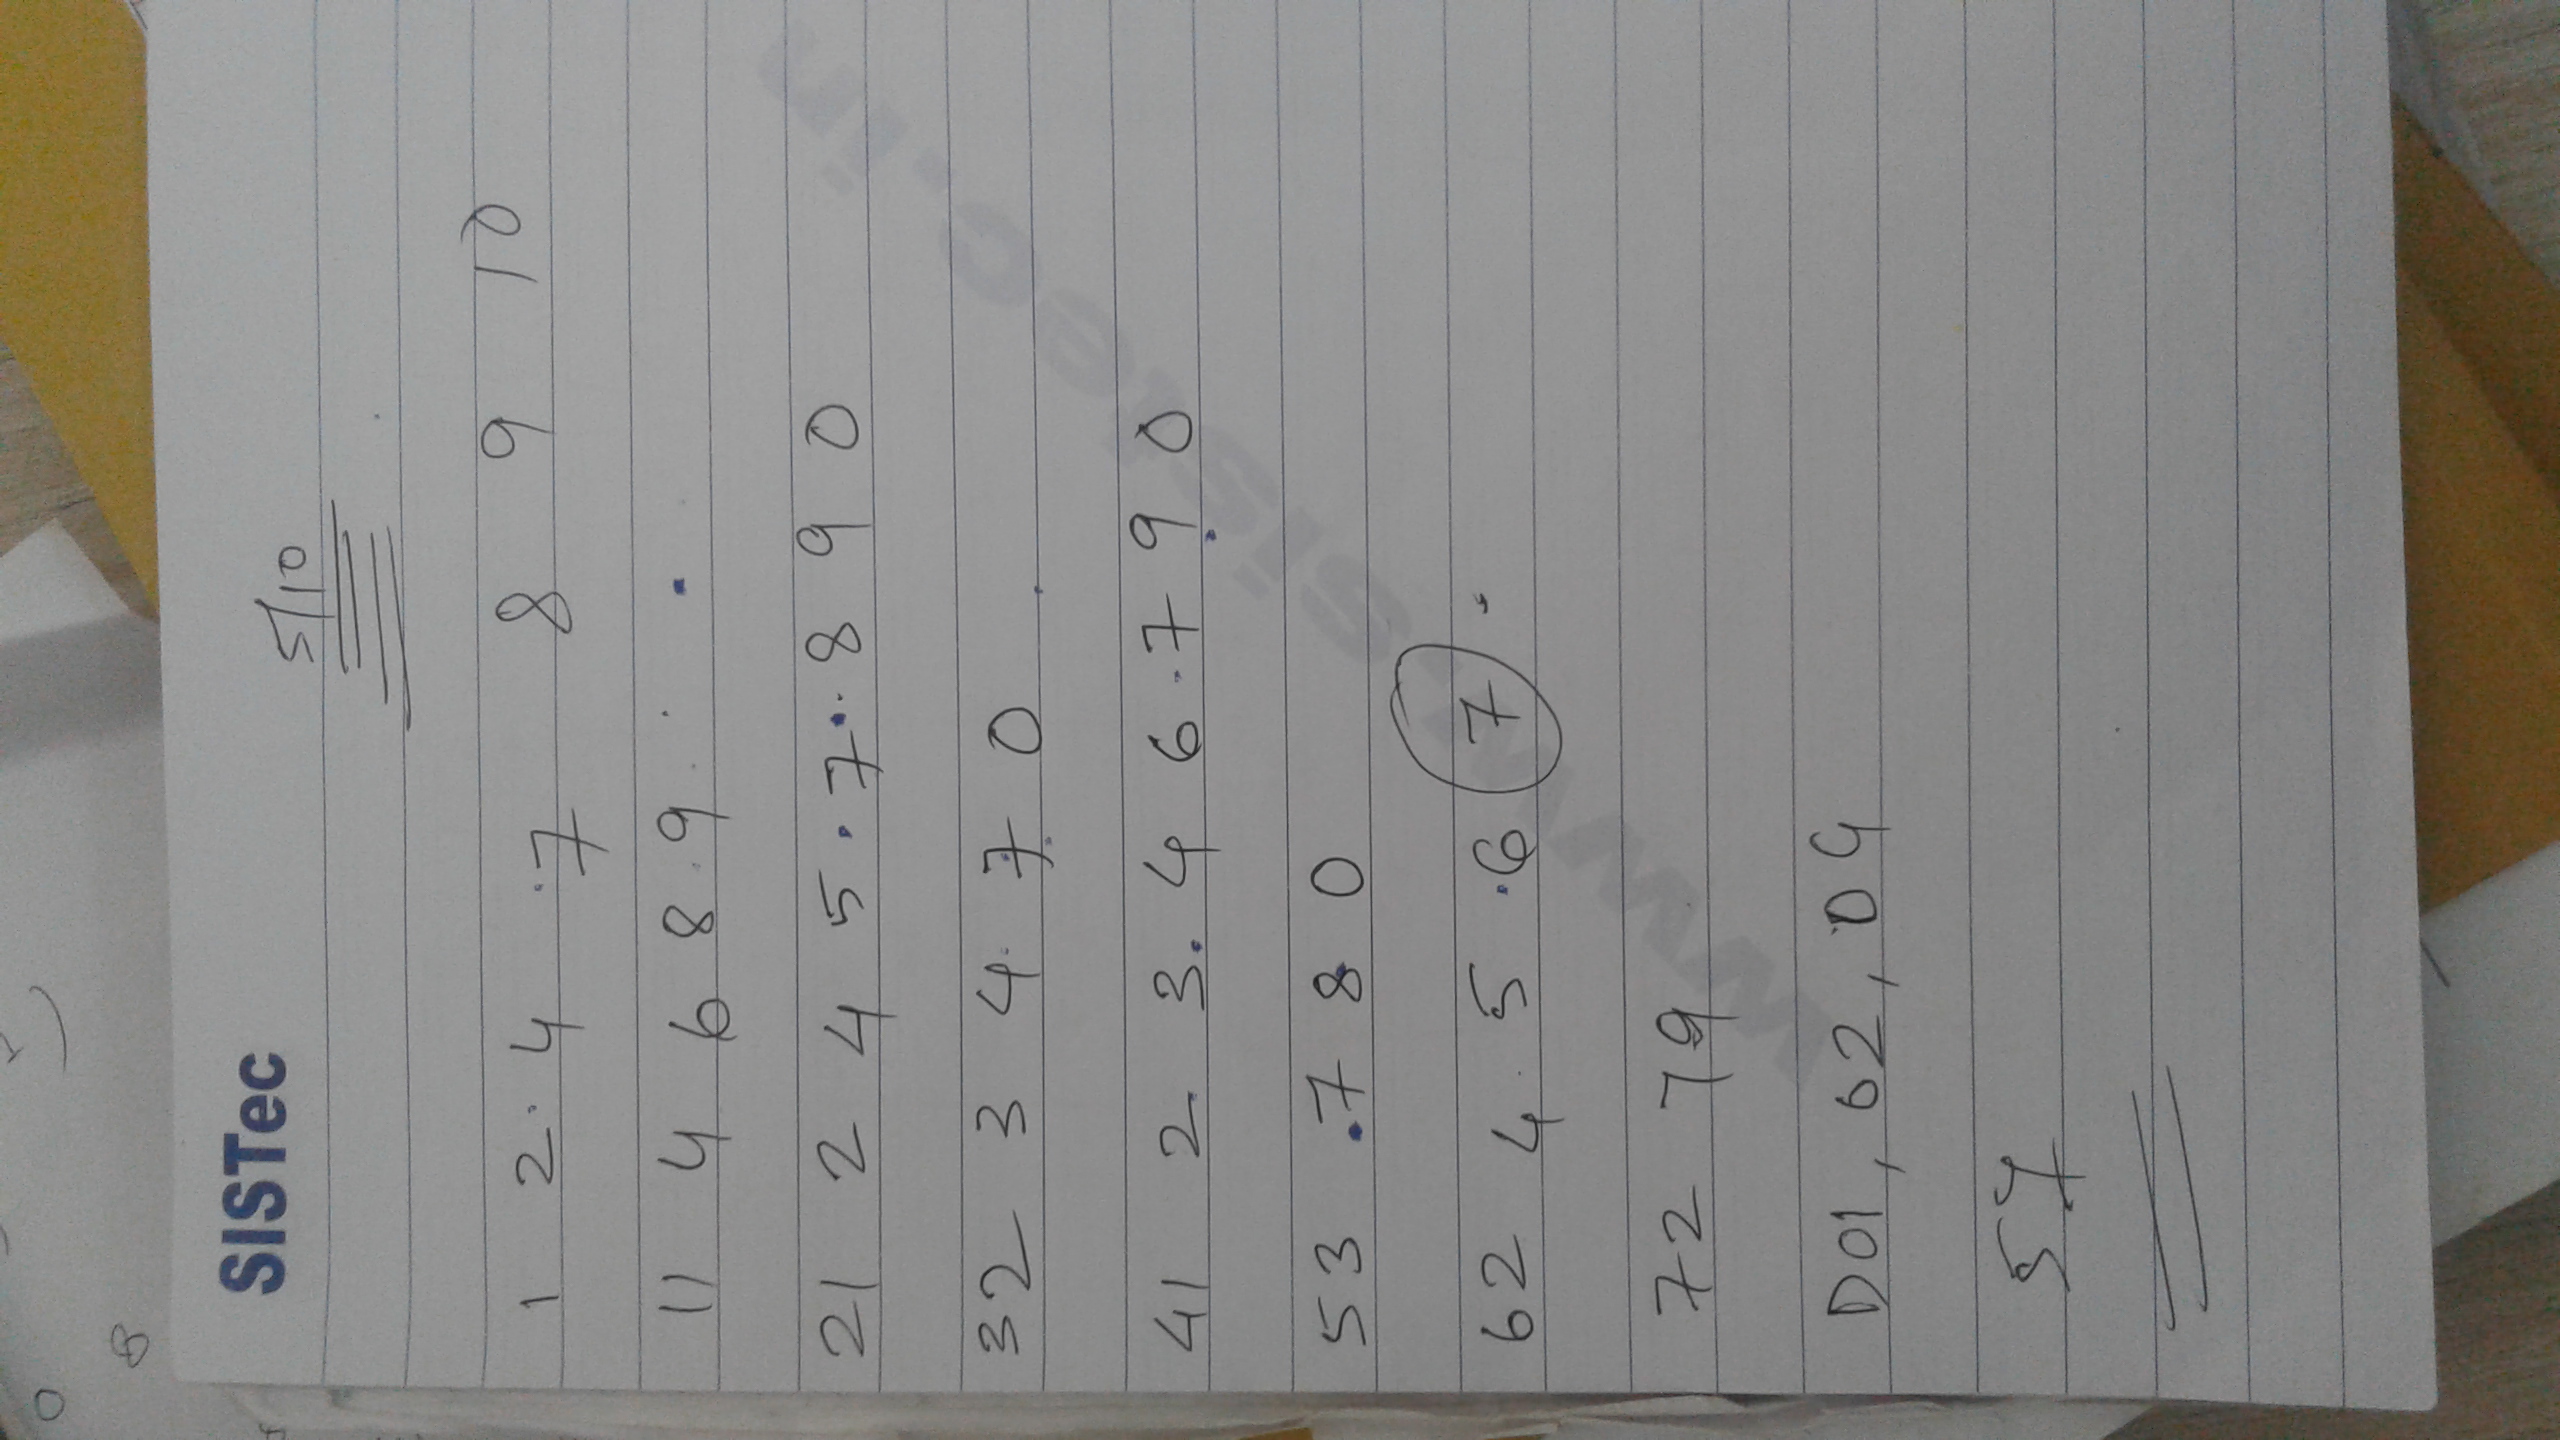 0
8
SISTec
5/10
1 2 4 7 8 9 10
11 4 6 8 9
21 2 4 5 7 8 9 0
32 3 4 7 0
41 2 3 4 6 7 9 0
53 7 8 0
62 4 5 6 7
72 79
D01, 02, 04
57
www.sistec.in